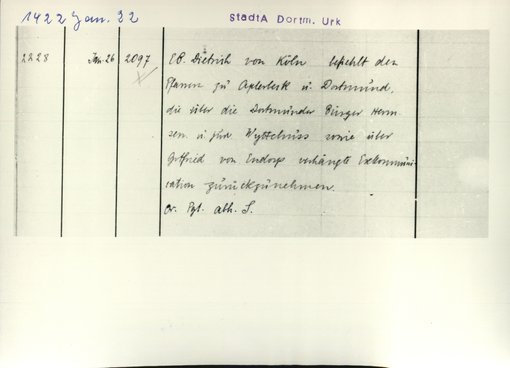 1422 Jan. 22
StadtA Dortm. Urk
2228 Jan 26 2097 EB. Dietrich von Köln befiehlt den
Pfarrern zu Aplerbeck u. Dortmund,
die über die Dortmunder Bürger Herm-
sem. u. Wyttchuss sowie über
Gottfried von Endorp verhängte Exkommuni-
cation zurückzunehmen.
Or. Pgt. abh. S.